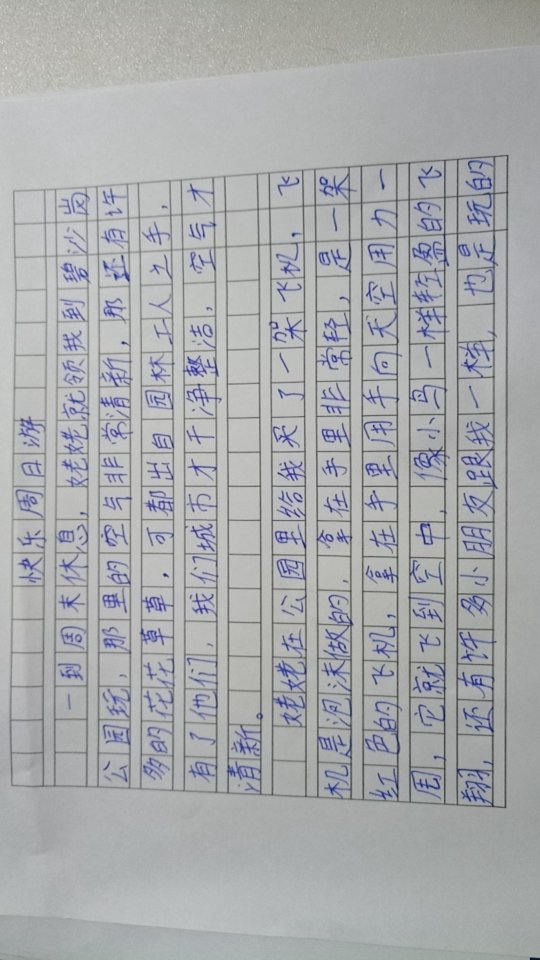 快乐周日游
一到周末休息，姥姥就领我到碧沙岗
公园玩，那里的空气非常清新，那还有许
多的花花草草，可都出自园林工人之手，
有了他们，我们城市才干净整洁，空气才
清新。
姥姥在公园里给我买了一架飞机，飞
机是泡沫做的，拿在手里非常轻，是一架
红色的飞机，拿在手里用手向天空用力一
甩，它就飞到空中，像小鸟一样轻盈的飞
翔，还有许多小朋友跟我一样，也是玩的